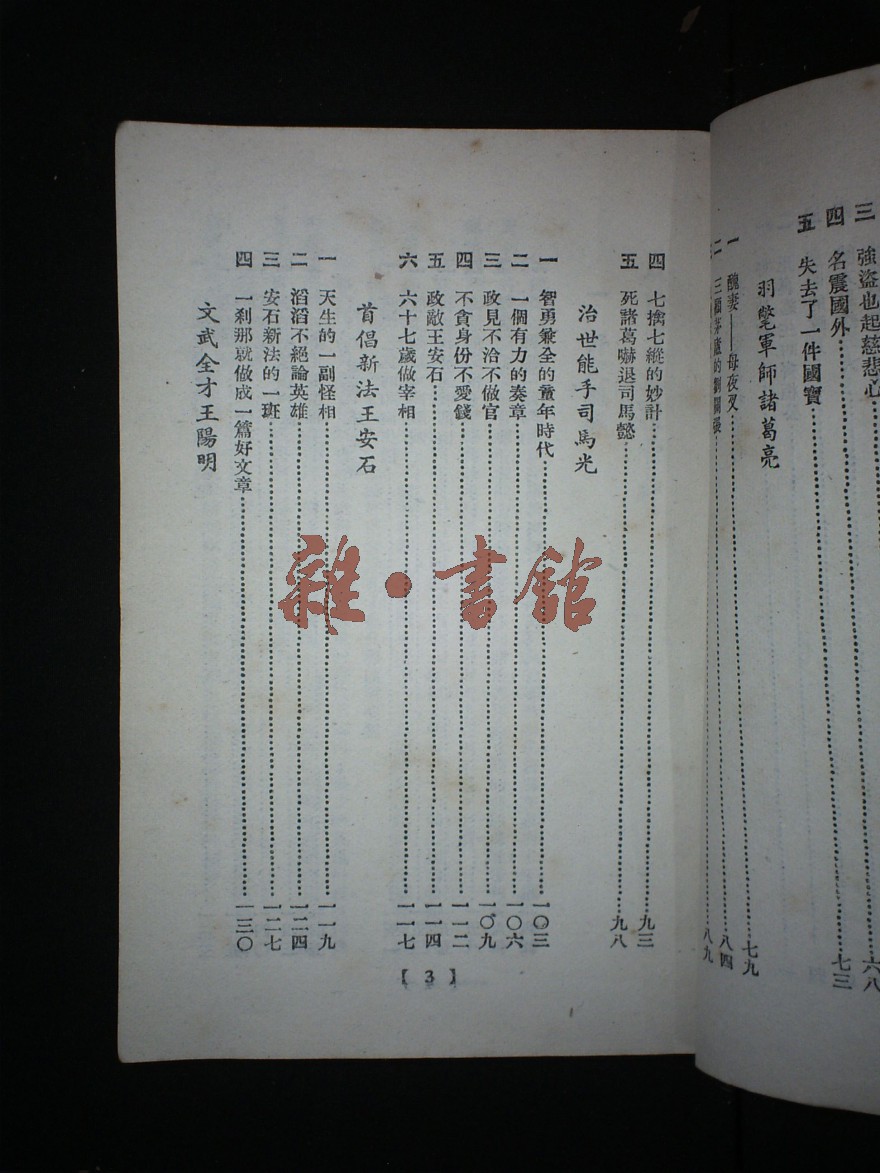 三　強盜也起慈悲心……六八
四　名震國外……七三
五　失去了一件國寶
羽氅軍師諸葛亮
一　醜妻——母夜叉……七九
二　三顧茅廬的劉關張……八四
八九
四　七擒七縱的妙計……九三
五　死諸葛嚇退司馬懿……九八
治世能手司馬光
一　智勇兼全的童年時代……一〇三
二　一個有力的奏章……一〇六
三　政見不洽不做官……一〇九
四　不貪身份不愛錢……一一二
五　政敵王安石……一一四
六　六十七歲做宰相……一一七
首倡新法王安石
一　天生的一副怪相……一一九
二　滔滔不絕論英雄……一二四
三　安石新法的一斑……一二七
四　一剎那就做成一篇好文章……一三〇
文武全才王陽明
【3】
雜·書館